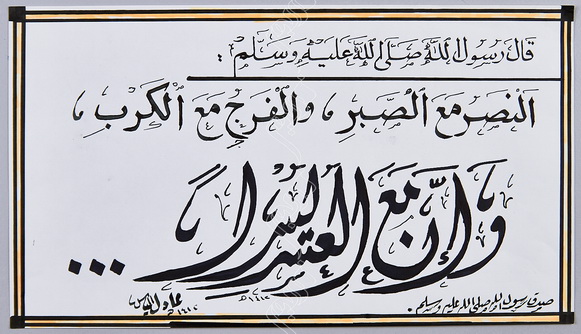 قال رسول الله صلى الله عليه وسلم:
النصر مع الصبر، والفرج مع الكرب،
وإن مع العسر يسرا...
صدق رسول الله صلى الله عليه وسلم.